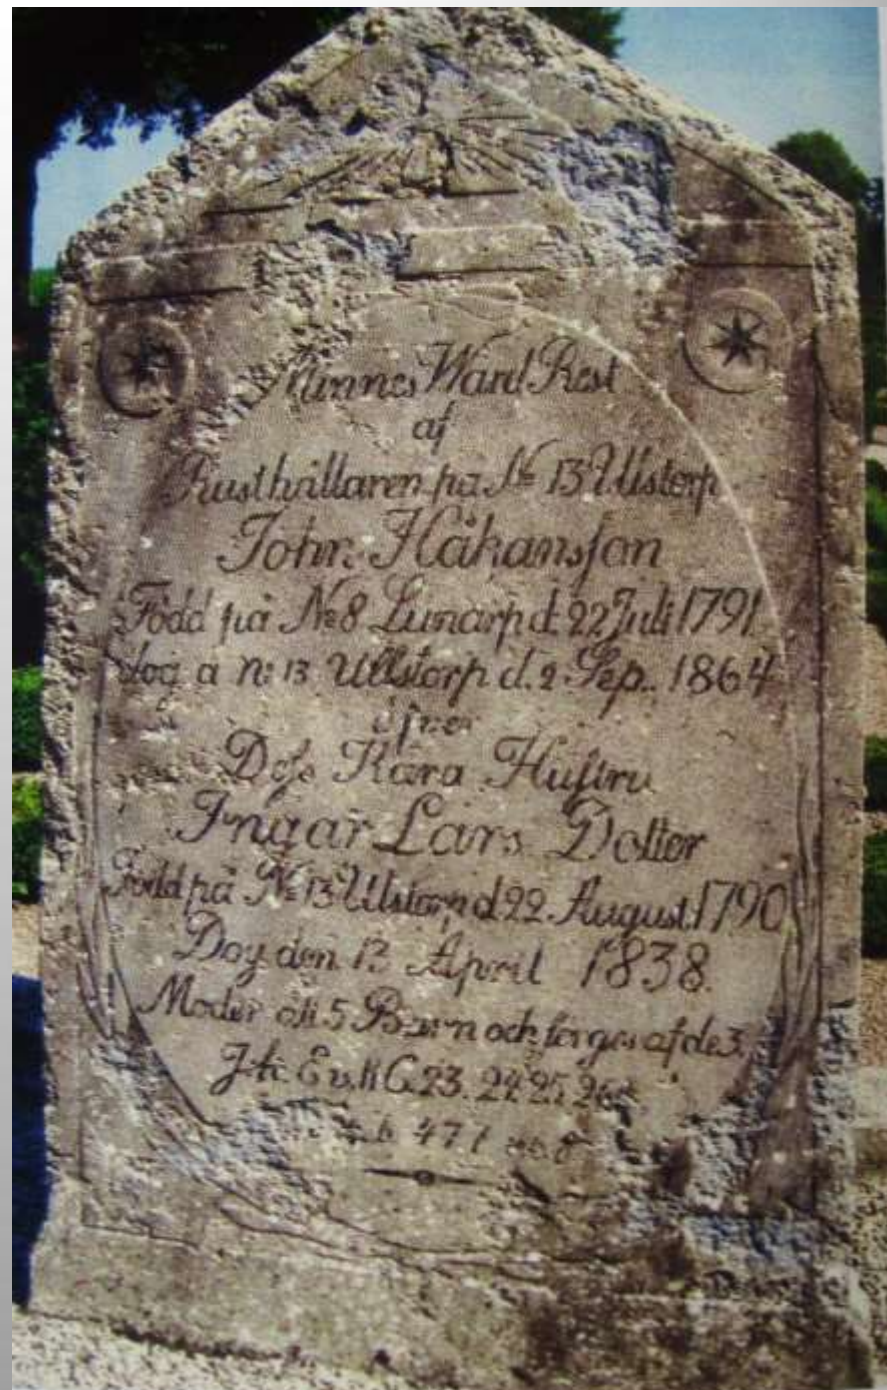 Minnes Ward Rest
af
Rusthållaren på No 13 Ullstorp
John Håkansson
Född på No 8 Lunarp d. 22 Juli 1791
dog å No 13 Ullstorp d. 2 Sep. 1864
öfver
Dess Kära Hustru
Ingar Lars Dotter
Född på No 13 Ulstorp d 22. August. 1790
Dog den 13 April 1838.
Moder åt 5 Barn och sörges af de 3.
23. 24. 25. 26
477